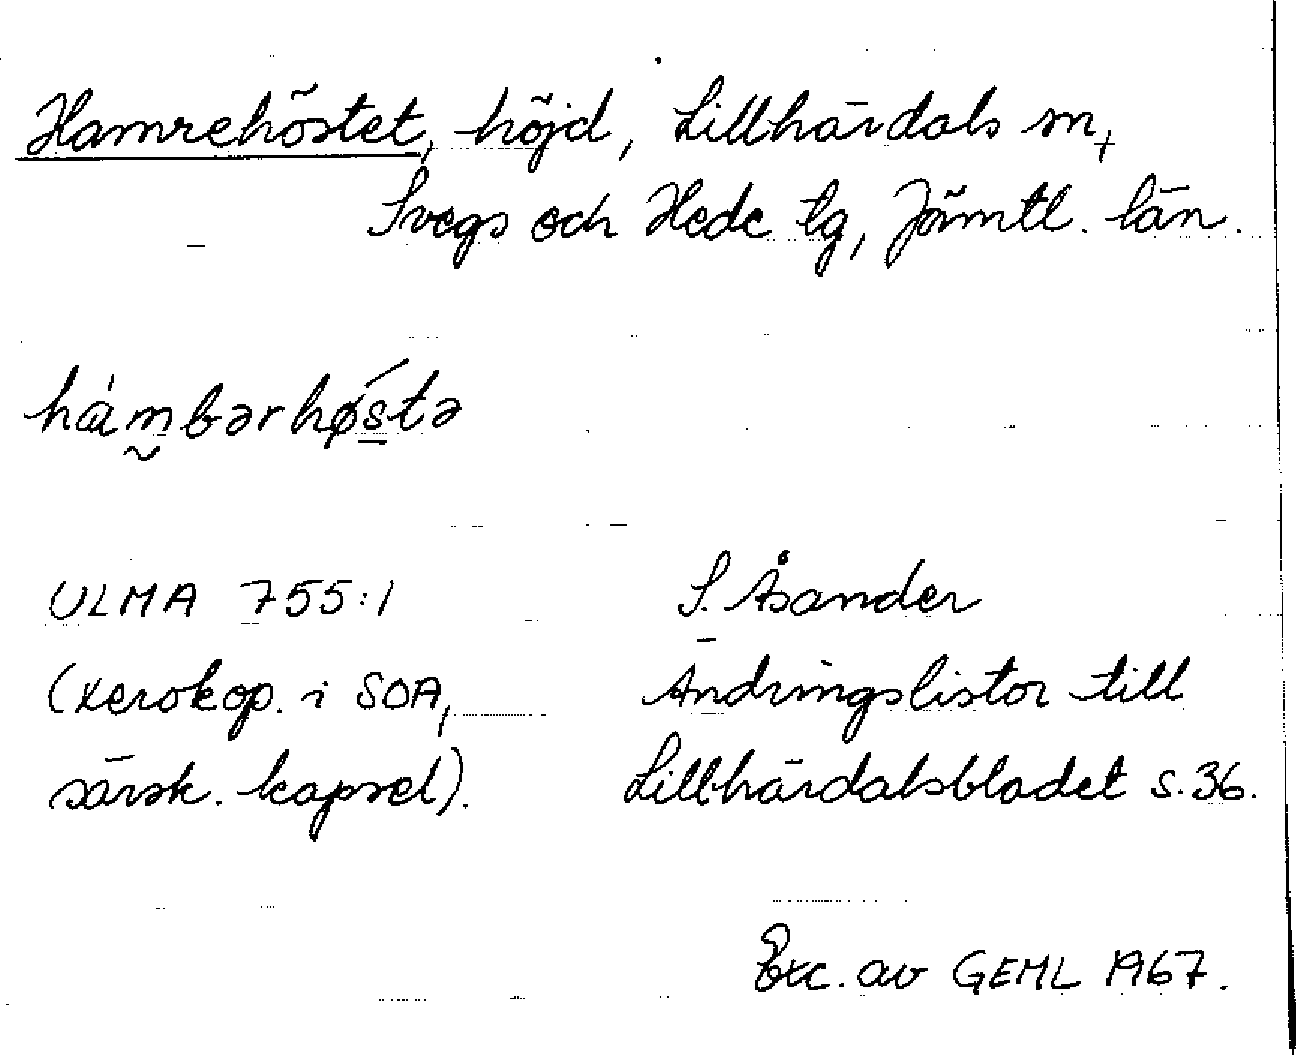 Hamrehöstet, höjd, Lillhärdals sn,
Svegs och Hede tg, Jämtl. län.
hám̰bərhǿs̲tə
ULMA 755:1
S. Åsander
(xerokop. i SOA,
Ändringslistor till
särsk. kapsel).
Lillhärdalsbladet s. 36.
Exc. av GEML 1967.